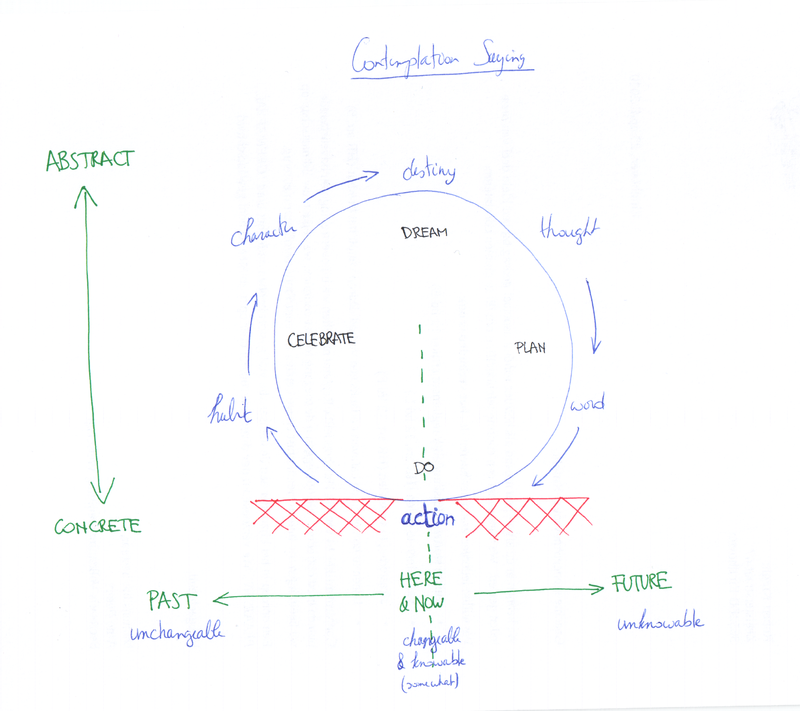 Contemplation Saying
ABSTRACT
destiny
character
DREAM
thought
CELEBRATE
PLAN
habit
word
DO
action
CONCRETE
HERE
& NOW
PAST
FUTURE
unchangeable
unknowable
changeable
& knowable
(somewhat)